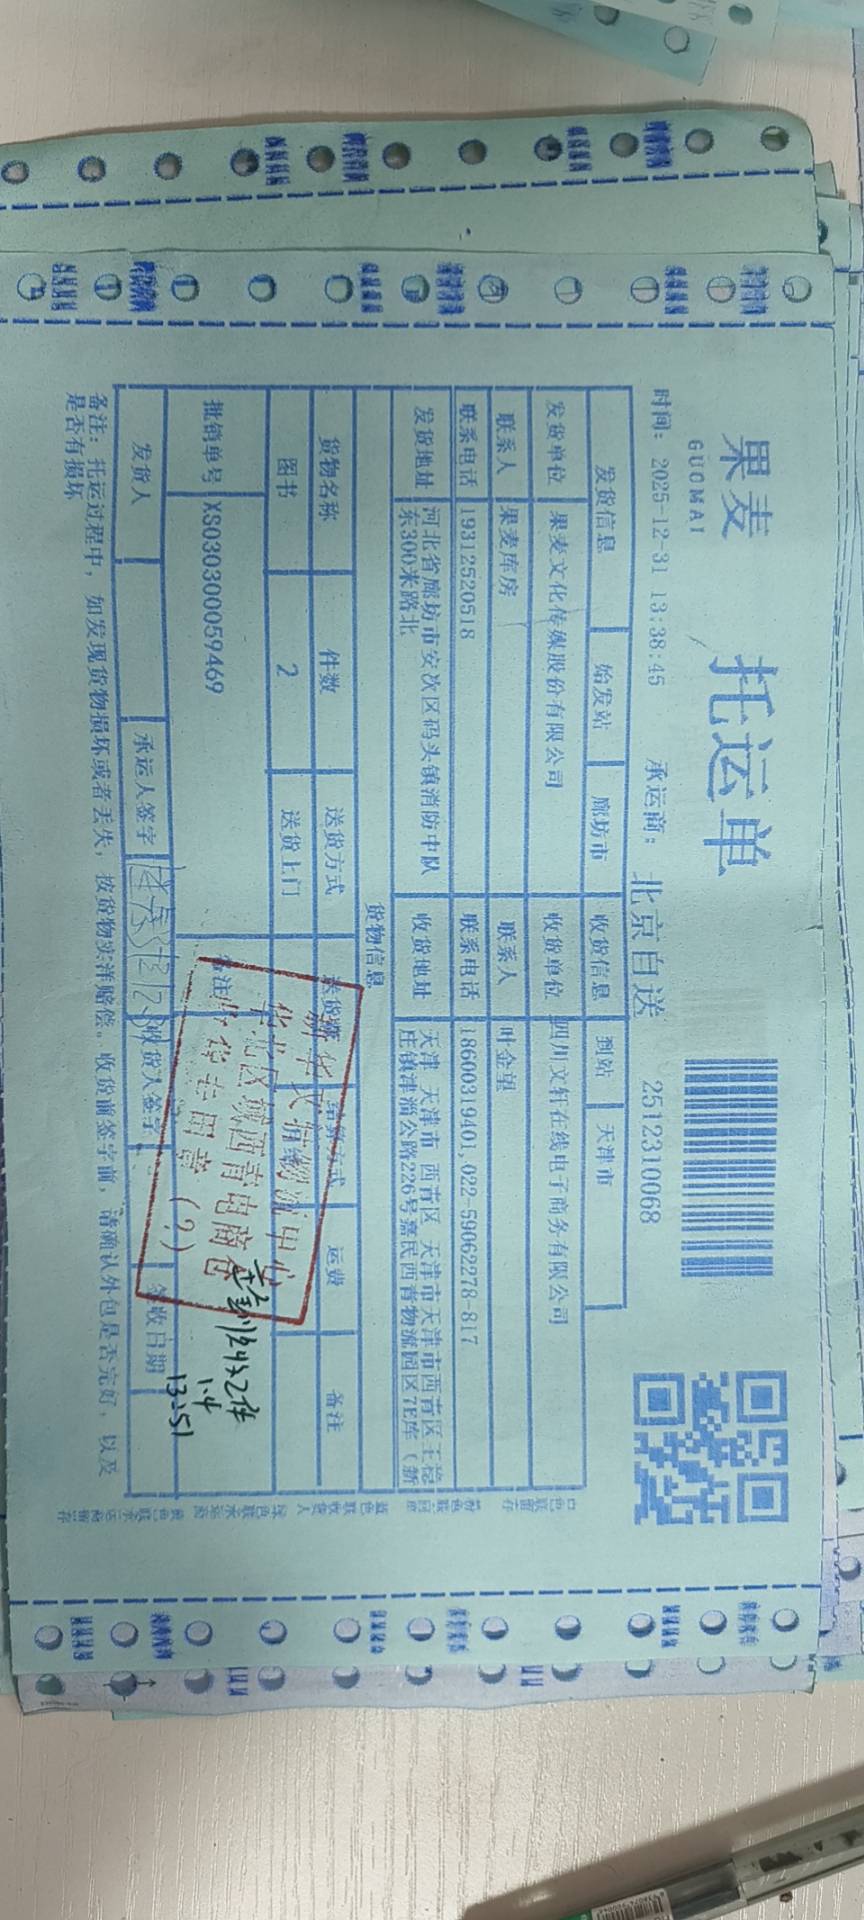 果麦
GUOMAI
托运单
时间: 2025-12-31 13:38:45 承运商: 北京自送 2512310068
发货信息 始发站 廊坊市 收货信息 到站 天津市
发货单位 果麦文化传媒股份有限公司 收货单位 四川文轩在线电子商务有限公司
联系人 果麦库房 联系人 叶金望
联系电话 19312520518 联系电话 18600319401,022-59062278-817
发货地址 河北省廊坊市安次区码头镇消防中队东300米路北 收货地址 天津 天津市 西青区 天津市天津市西青区王稳庄镇津淄公路226号嘉民西青物流园区7E库（新
货物信息
货物名称 件数 送货方式 结算方式 运费 备注
图书 2 送货上门
批销单号 XS030300059469 备注
发货人 承运人签字 收货人签字 签收日期
新华文轩物流中心
华北区域西青电商仓
收货专用章（2）
1.4
13:51
备注: 托运过程中, 如发现货物损坏或者丢失, 按货物实洋赔偿。收货前签字前, 请确认外包是否完好, 以及
是否有损坏